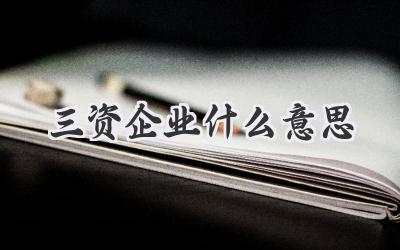 三资企业什么意思